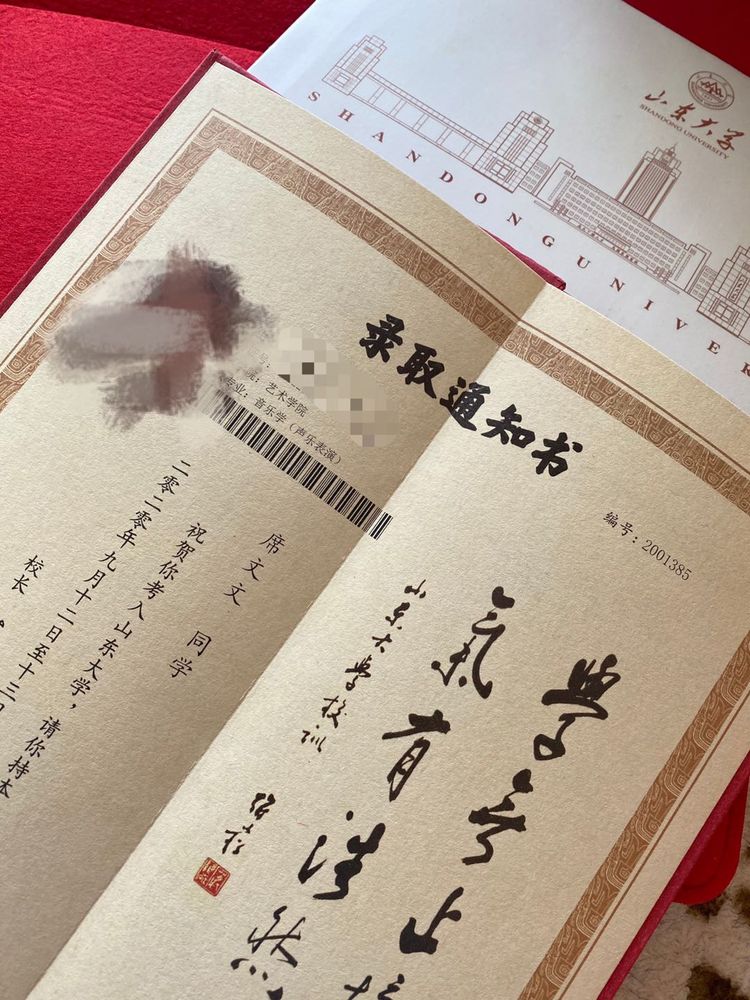 山东大学
SHANDONG UNIVERSITY
SHANDONG UNIVER
录取通知书
编号：2001385
号：
艺术学院
专业：音乐学（声乐表演）
席文文 同学
祝贺你考入山东大学，请你持本
二零二零年九月十二日至十三日
校长
學無止
氣有浩然
山东大学校训